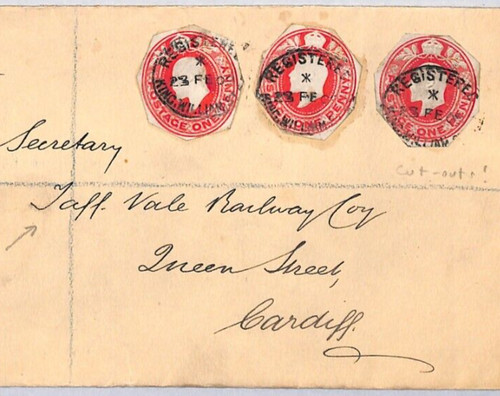 REGISTERED REGISTERED REGISTERED
* * *
23 FE 23 FE FE
KING WILLIAM KING WILLIAM WILLIAM
POSTAGE ONE PENNY POSTAGE ONE PENNY POSTAGE ONE PENNY
Secretary
cut-outs!
Taff. Vale Railway Coy
Queen Street,
Cardiff.